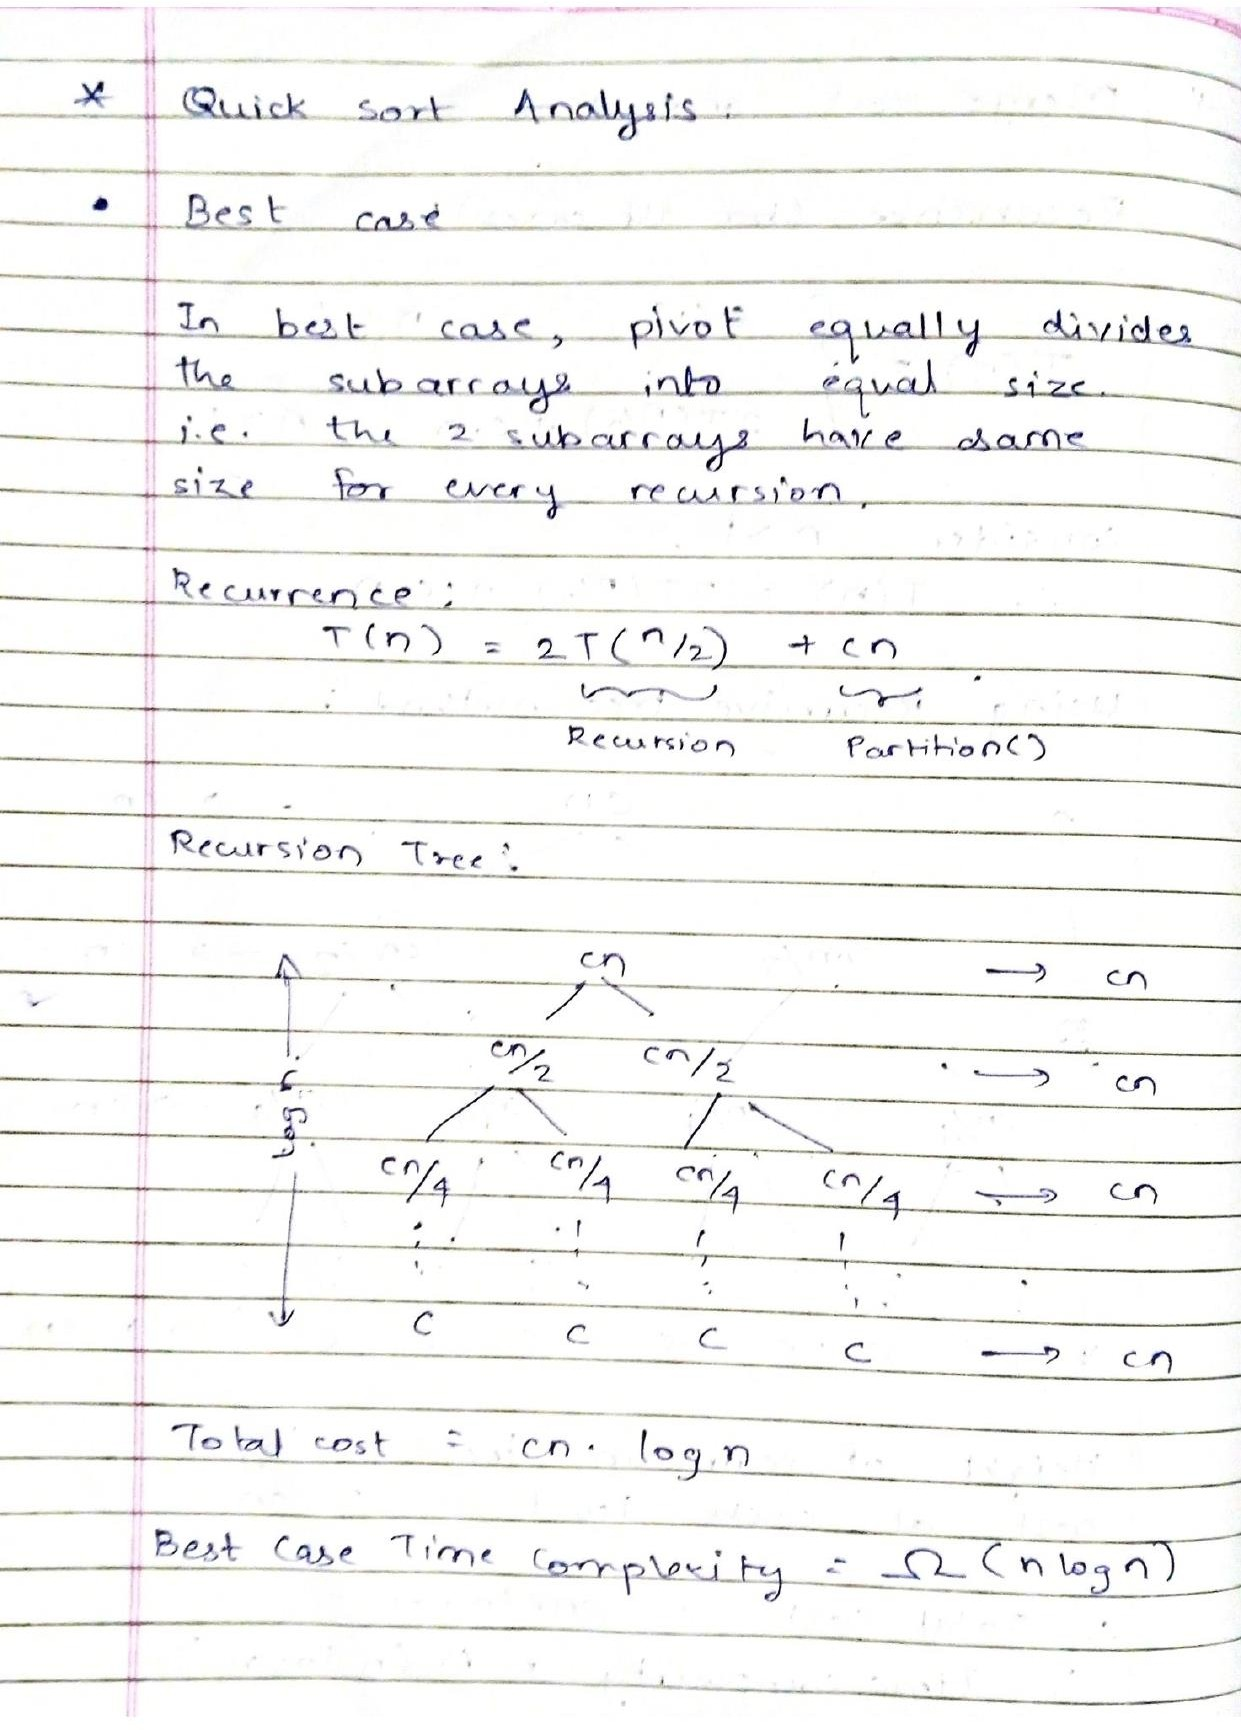 * Quick sort Analysis.
• Best case
In best case, pivot equally divides
the subarrays into equal size.
i.e. the 2 subarrays have same
size for every recursion.
Recurrence:
T(n) = 2T(n/2) + cn
Recursion Partition()
Recursion Tree:
cn → cn
cn/2 cn/2 → cn
log n
cn/4 cn/4 cn/4 cn/4 → cn
c c c c → cn
Total cost = cn. log n
Best Case Time Complexity = Ω(n log n)